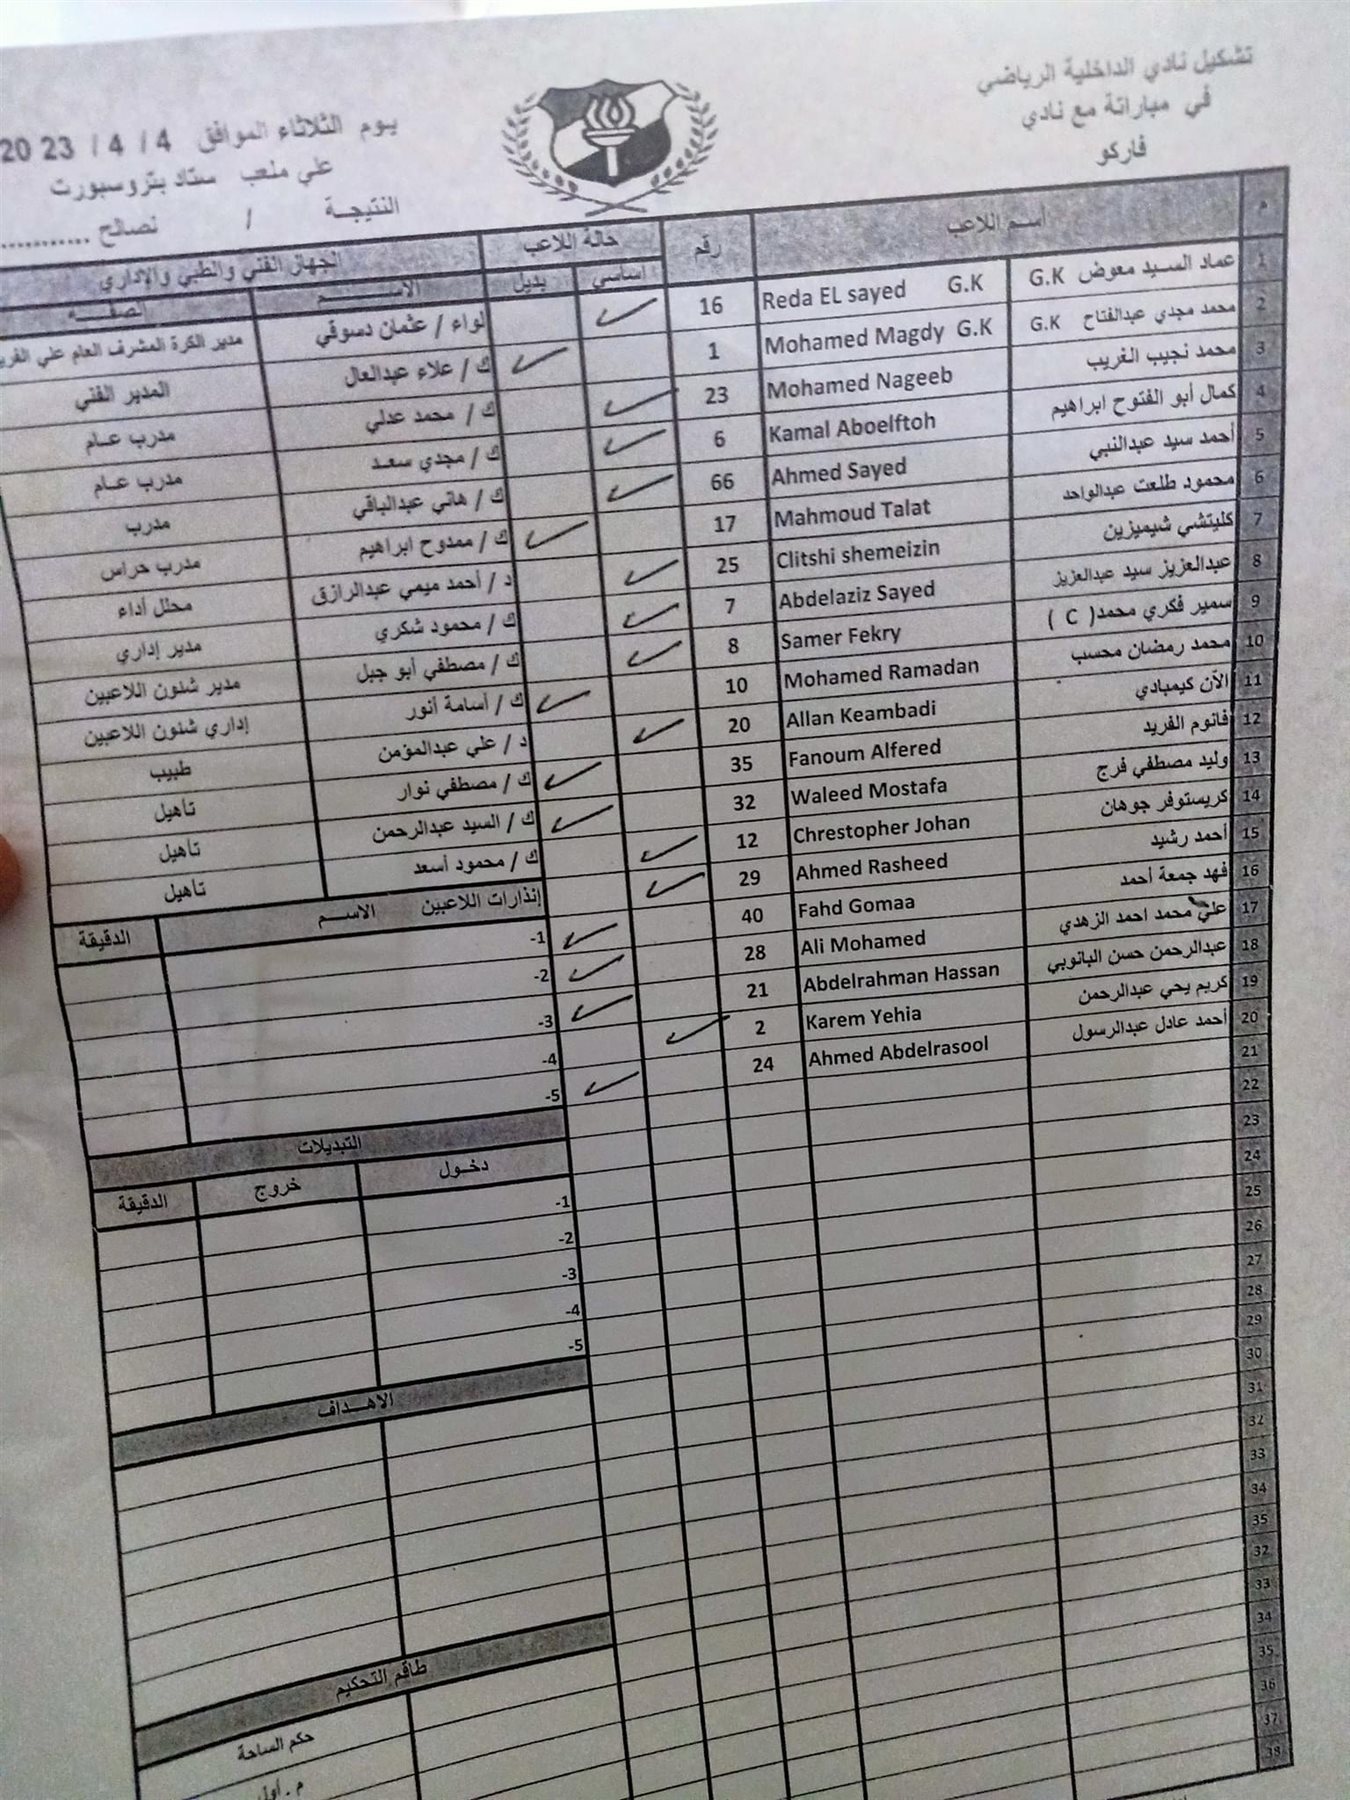 تشكيل نادي الداخلية الرياضي
في مباراتة مع نادي
فاركو
يوم الثلاثاء الموافق 4 / 4 / 2023
علي ملعب ستاد بتروسبورت
النتيجـة / لصالح ............
م أسـم اللاعب رقم حالة اللاعب
أساسي بديل
1 عماد السيد معوض G.K Reda EL sayed G.K 16
2 محمد مجدي عبدالفتاح G.K Mohamed Magdy G.K 1
3 محمد نجيب الغريب Mohamed Nageeb 23
4 كمال أبو الفتوح ابراهيم Kamal Aboelftoh 6
5 أحمد سيد عبدالنبي Ahmed Sayed 66
6 محمود طلعت عبدالواحد Mahmoud Talat 17
7 كليتشي شيميزين Clitshi shemeizin 25
8 عبدالعزيز سيد عبدالعزيز Abdelaziz Sayed 7
9 سمير فكري محمد( C ) Samer Fekry 8
10 محمد رمضان محسب Mohamed Ramadan 10
11 الآن كيمبادي Allan Keambadi 20
12 فانوم الفريد Fanoum Alfered 35
13 وليد مصطفي فرج Waleed Mostafa 32
14 كريستوفر جوهان Chrestopher Johan 12
15 أحمد رشيد Ahmed Rasheed 29
16 فهد جمعة أحمد Fahd Gomaa 40
17 علي محمد احمد الزهدي Ali Mohamed 28
18 عبدالرحمن حسن البانوبي Abdelrahman Hassan 21
19 كريم يحي عبدالرحمن Karem Yehia 2
20 أحمد عادل عبدالرسول Ahmed Abdelrasool 24
21
22
23
24
25
26
27
28
29
30
31
32
33
34
35
32
33
34
35
36
37
38
الجهاز الفني والطبي والإداري
الاســـــم الصفــــة
لواء / عثمان دسوقي مدير الكرة المشرف العام علي
ك / علاء عبدالعال المدير الفني
ك / محمد عدلي مدرب عـام
ك / مجدي سعـد مدرب عـام
ك / هاني عبدالباقي مدرب
ك / ممدوح ابراهيم مدرب حراس
د / أحمد ميمي عبدالرازق محلل أداء
ك / محمود شكري مدير إداري
ك / مصطفي أبو جبل مدير شئون اللاعبين
ك / أسامة أنور إداري شئون اللاعبين
د / علي عبدالمؤمن طبيب
ك / مصطفي نوار تأهيل
ك / السيد عبدالرحمن تأهيل
ك / محمود أسعد تأهيل
إنذارات اللاعبين الاســم الدقيقة
1-
2-
3-
4-
5-
التبديلات
دخـول خروج الدقيقة
1-
2-
3-
4-
5-
الاهــداف
طاقم التحكيم
حكم الساحة
م . أول